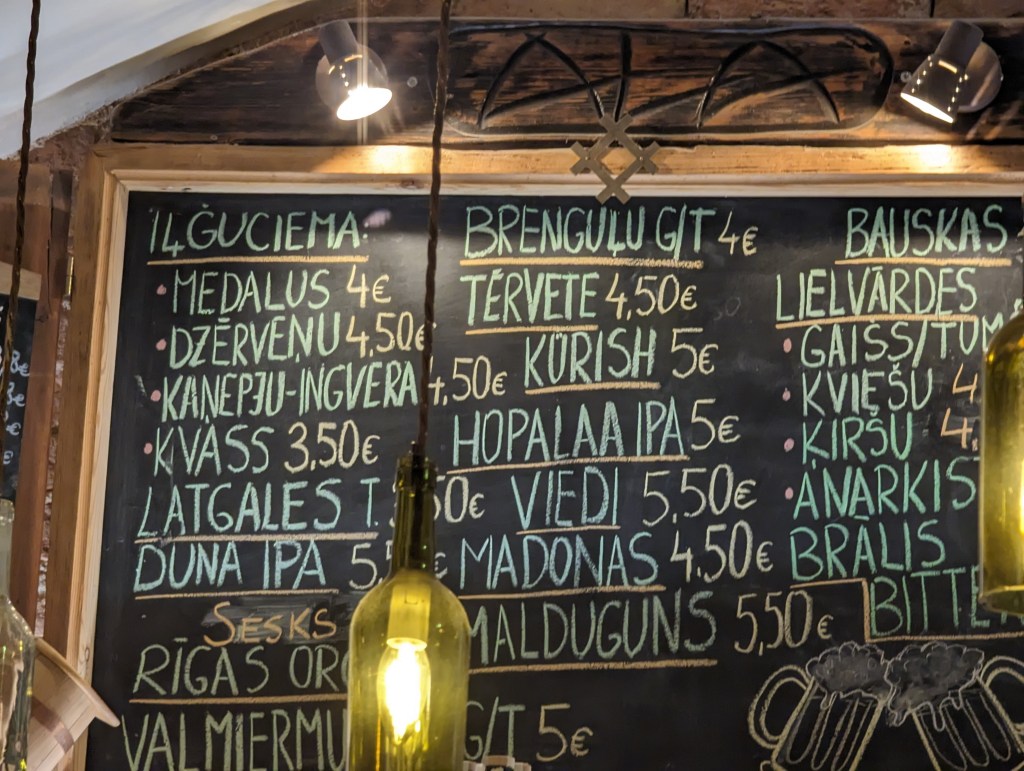 IĻĢUCIEMA:
MEDALUS 4€
DZĒRVEŅU 4,50€
KAŅEPJU-INGVERA 4,50€
KVASS 3,50€
LATGALES T. 50€
DUNA IPA 5,
SESKS
RĪGAS ORG
VALMIERMU G/T 5€
BRENGUĻU G/T 4€
TĒRVETE 4,50€
KŪRISH 5€
HOPALAA IPA 5€
VIEDI 5,50€
MADONAS 4,50€
MALDUGUNS 5,50€
BAUSKAS
LIELVĀRDES
GAIŠS/TUM
KVIEŠU 4
ĶIRŠU 4,
ANARĶIS
BRĀLIS
BITTE